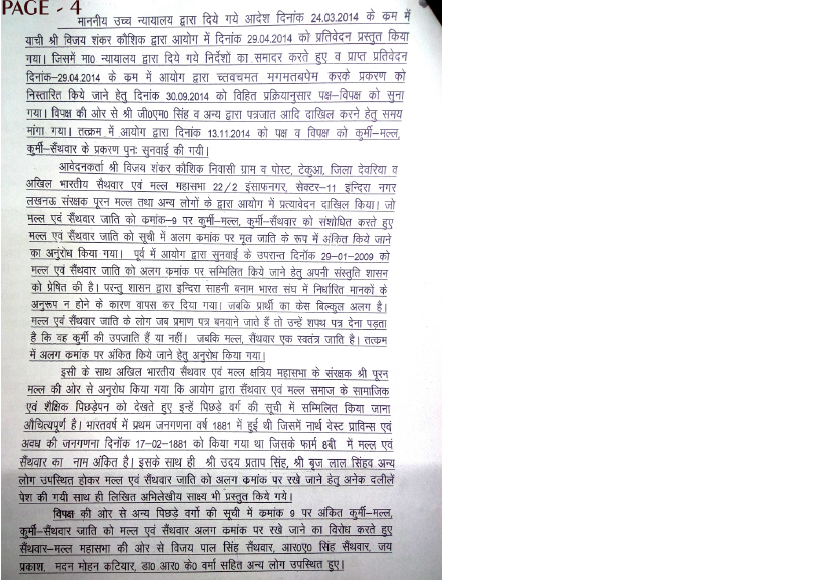 PAGE - 4
माननीय उच्च न्यायालय द्वारा दिये गये आदेश दिनांक 24.03.2014 के कम में
याची श्री विजय शंकर कौशिक द्वारा आयोग में दिनांक 29.04.2014 को प्रतिवेदन प्रस्तुत किया
गया। जिसमें मा० न्यायालय द्वारा दिये गये निर्देशों का समादर करते हुए व प्राप्त प्रतिवेदन
दिनांक–29.04.2014 के कम में आयोग द्वारा च्तवचमत मगमतबपेम करके प्रकरण को
निस्तारित किये जाने हेतु दिनांक 30.09.2014 को विहित प्रक्रियानुसार पक्ष–विपक्ष को सुना
गया। विपक्ष की ओर से श्री जी०एम० सिंह व अन्य द्वारा पत्रजात आदि दाखिल करने हेतु समय
मांगा गया। तत्क्रम में आयोग द्वारा दिनांक 13.11.2014 को पक्ष व विपक्ष को कुर्मी–मल्ल,
कुर्मी–सैंथवार के प्रकरण पुनः सुनवाई की गयी।
आवेदनकर्ता श्री विजय शंकर कौशिक निवासी ग्राम व पोस्ट, टेकुआ, जिला देवरिया व
अखिल भारतीय सैंथवार एवं मल्ल महासभा 22/2 इंसाफनगर, सेक्टर–11 इन्दिरा नगर
लखनऊ संरक्षक पूरन मल्ल तथा अन्य लोगों के द्वारा आयोग में प्रत्यावेदन दाखिल किया। जो
मल्ल एवं सैंथवार जाति को कमांक–9 पर कुर्मी–मल्ल, कुर्मी–सैंथवार को संशोधित करते हुए
मल्ल एवं सैंथवार जाति को सूची में अलग कमांक पर मूल जाति के रूप में अंकित किये जाने
का अनुरोध किया गया। पूर्व में आयोग द्वारा सुनवाई के उपरान्त दिनॉक 29–01–2009 को
मल्ल एवं सैंथवार जाति को अलग कमांक पर सम्मिलित किये जाने हेतु अपनी संस्तुति शासन
को प्रेषित की है। परन्तु शासन द्वारा इन्दिरा साहनी बनाम भारत संघ में निर्धारित मानकों के
अनुरूप न होने के कारण वापस कर दिया गया। जबकि प्रार्थी का केस बिल्कुल अलग है।
मल्ल एवं सैंथवार जाति के लोग जब प्रमाण पत्र बनवाने जाते हैं तो उन्हें शपथ पत्र देना पड़ता
है कि वह कुर्मी की उपजाति हैं या नहीं। जबकि मल्ल, सैंथवार एक स्वतंत्र जाति है। तत्कम
में अलग कमांक पर अंकित किये जाने हेतु अनुरोध किया गया।
इसी के साथ अखिल भारतीय सैंथवार एवं मल्ल क्षत्रिय महासभा के संरक्षक श्री पूरन
मल्ल की ओर से अनुरोध किया गया कि आयोग द्वारा सैंथवार एवं मल्ल समाज के सामाजिक
एवं शैक्षिक पिछड़ेपन को देखते हुए इन्हें पिछड़े वर्ग की सूची में सम्मिलित किया जाना
औचित्यपूर्ण है। भारतवर्ष में प्रथम जनगणना वर्ष 1881 में हुई थी जिसमें नार्थ वेस्ट प्राविन्स एवं
अवध की जनगणना दिनॉक 17–02–1881 को किया गया था जिसके फार्म 8बी में मल्ल एवं
सैंथवार का नाम अंकित है। इसके साथ ही श्री उदय प्रताप सिंह, श्री बृज लाल सिंहव अन्य
लोग उपस्थित होकर मल्ल एवं सैंथवार जाति को अलग कमांक पर रखे जाने हेतु अनेक दलीलें
पेश की गयी साथ ही लिखित अभिलेखीय साक्ष्य भी प्रस्तुत किये गये।
विपक्ष की ओर से अन्य पिछड़े वर्गों की सूची में कमांक 9 पर अंकित कुर्मी–मल्ल,
कुर्मी–सैंथवार जाति को मल्ल एवं सैंथवार अलग कमांक पर रखे जाने का विरोध करते हुए
सैंथवार–मल्ल महासभा की ओर से विजय पाल सिंह सैंथवार, आर०ए० सिंह सैंथवार, जय
प्रकाश, मदन मोहन कटियार, डा० आर० के० वर्मा सहित अन्य लोग उपस्थित हुए।